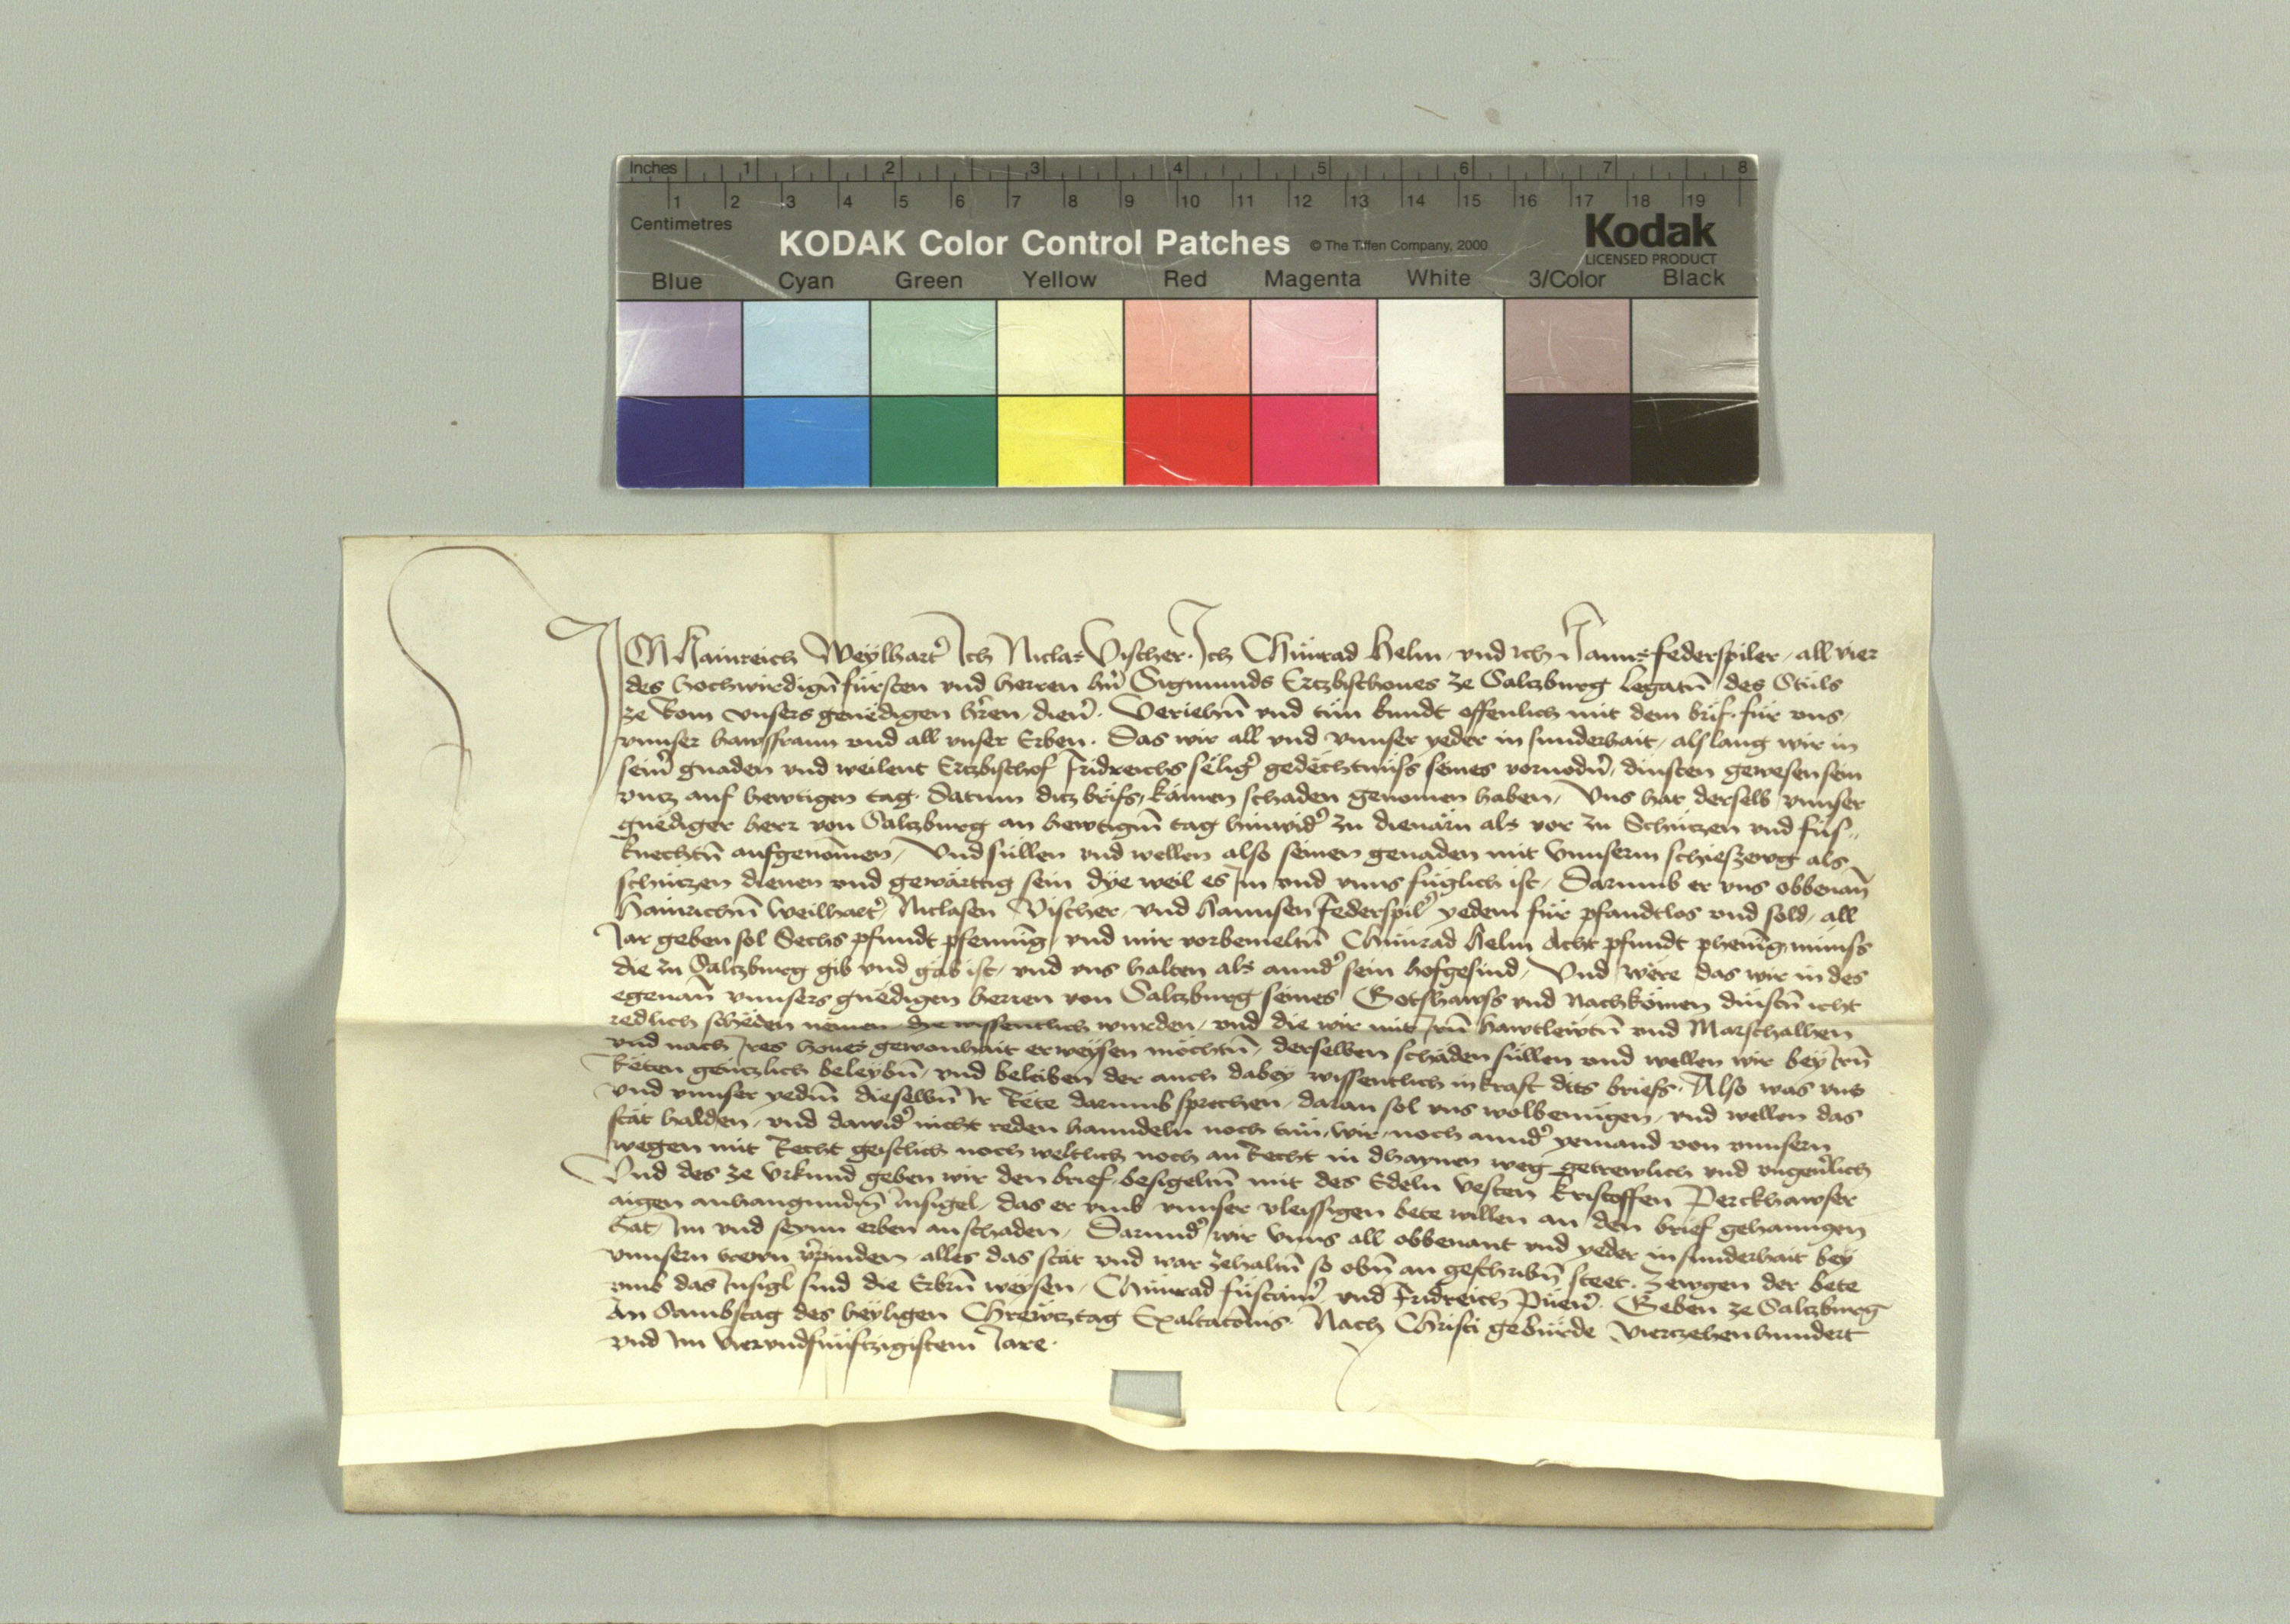 Inches 1 2 3 4 5 6 7 8
1 2 3 4 5 6 7 8 9 10 11 12 13 14 15 16 17 18 19
Centimetres
KODAK Color Control Patches © The Tiffen Company, 2000 Kodak
LICENSED PRODUCT
Blue Cyan Green Yellow Red Magenta White 3/Color Black
ICh Hainreich Weÿlhart̉ Ich Niclas Vischer. Ich Chůnrad Helm, vnd ich Hanns federspiler, all vier
des hochwirdigñ fürsten vnd herren hr̃n Sigmunds Ertzbischoues ze Saltzburg Legatñ des Stůls
ze Rom vnsers genëdigen hr̃ren, dien̉. Veriehñ vnd tůn kundt offenlich mit dem brif, für vns,
vnnser hawsfrawn vnd all vnser Erben. Das wir all vnd vnnser yeder in sunderhait, als lang wir in
sein̉ gnaden vnd weilent Ertzbischof Fridreichs sëlig̉ gedëchtnüss seines voruodn̉, dinsten gewesen sein
vntz auf hewtigen tag, datum ditz brifs, kainen schaden genomen haben, Vns hat derselb vnnser
gnëdiger herr von Saltzburg an hewtigm̃ tag hinwid̉ zu dienärn als vor zu Schützen vnd fůs„
knechtñ aufgenõmen, Vnd süllen vnd wellen also seinen genaden mit vnnserm schieszewg als
schützen dienen vnd gewärttig sein dÿe weil es Im vnd vnns füglich ist, Darumb er vns obbenañ
Hainrichñ Weilhart̉, Niclasen Vischer, vnd Hannsen Federspil̉ yedem für pfandtlos vnd sold, all
Jar geben sol Sechs pfundt pfenning, vnd mir vorbemeltñ Chůnrad Helm Acht pfundt phening, münss
die zu Saltzburg gib vnd gäb ist, vnd vns halten als annd̉ sein hofgesind, Vnd wëre das wir in des
egenañ vnnsers gnëdigen herren von Saltzburg seines Gotshawss vnd Nachkömen dinstñ icht
redlich schëden nemen dye wissentlich wurden, vnd die wir mit Irñ hawtlewtñ vnd Marschalhen
vnd nach Ires houes gewonhait erweÿsen möchtñ, derselben schëden süllen vnd wellen wir beÿ Irñ
Rëten gentzlich beleybñ, vnd beleiben der auch dabey wissentlich in kraft dits briefs. Also was vns
vnd vnnser yedm̃ dieselbñ Ir Rëte darumb sprechen, daran sol vns wolbenügen, vnd wellen das
stät halden, vnd dawid̉ nicht reden hanndeln noch tůn, wir, noch annd̉ yemand von vnnsern
wegen mit Recht geistlich noch weltlich noch an Recht in dhaynen weg getrewlich vnd vngeṽlich
Vnd des ze Vrkund geben wir den brief, besigeltñ mit des Edeln vesten Kristoffen Perckhawser
aigen anhangundm̃ Insigel, das er vmb vnnser vleissigen bete willen an den brief gehanngen
hat, Im vnd seynn erben an schaden, Darund̉ wir vnns all obbenant vnd yeder in sunderhait bey
vnnsern trewn ṽpinden alles das stät vnd war zehaltñ so obñ an geschribñ steet. Zewgen der bete
vmb das Insigl sind die Erbrñ weysen, Chůnrad fůstain̉, vnd Fridreich Püer̉. Geben ze Saltzburg
an Sambstag des heyligen Chrewtztag Exaltatõnis. Nach Christi gebürde Viertzehenhundert
vnd Im viervndfünftzigistem Jare.